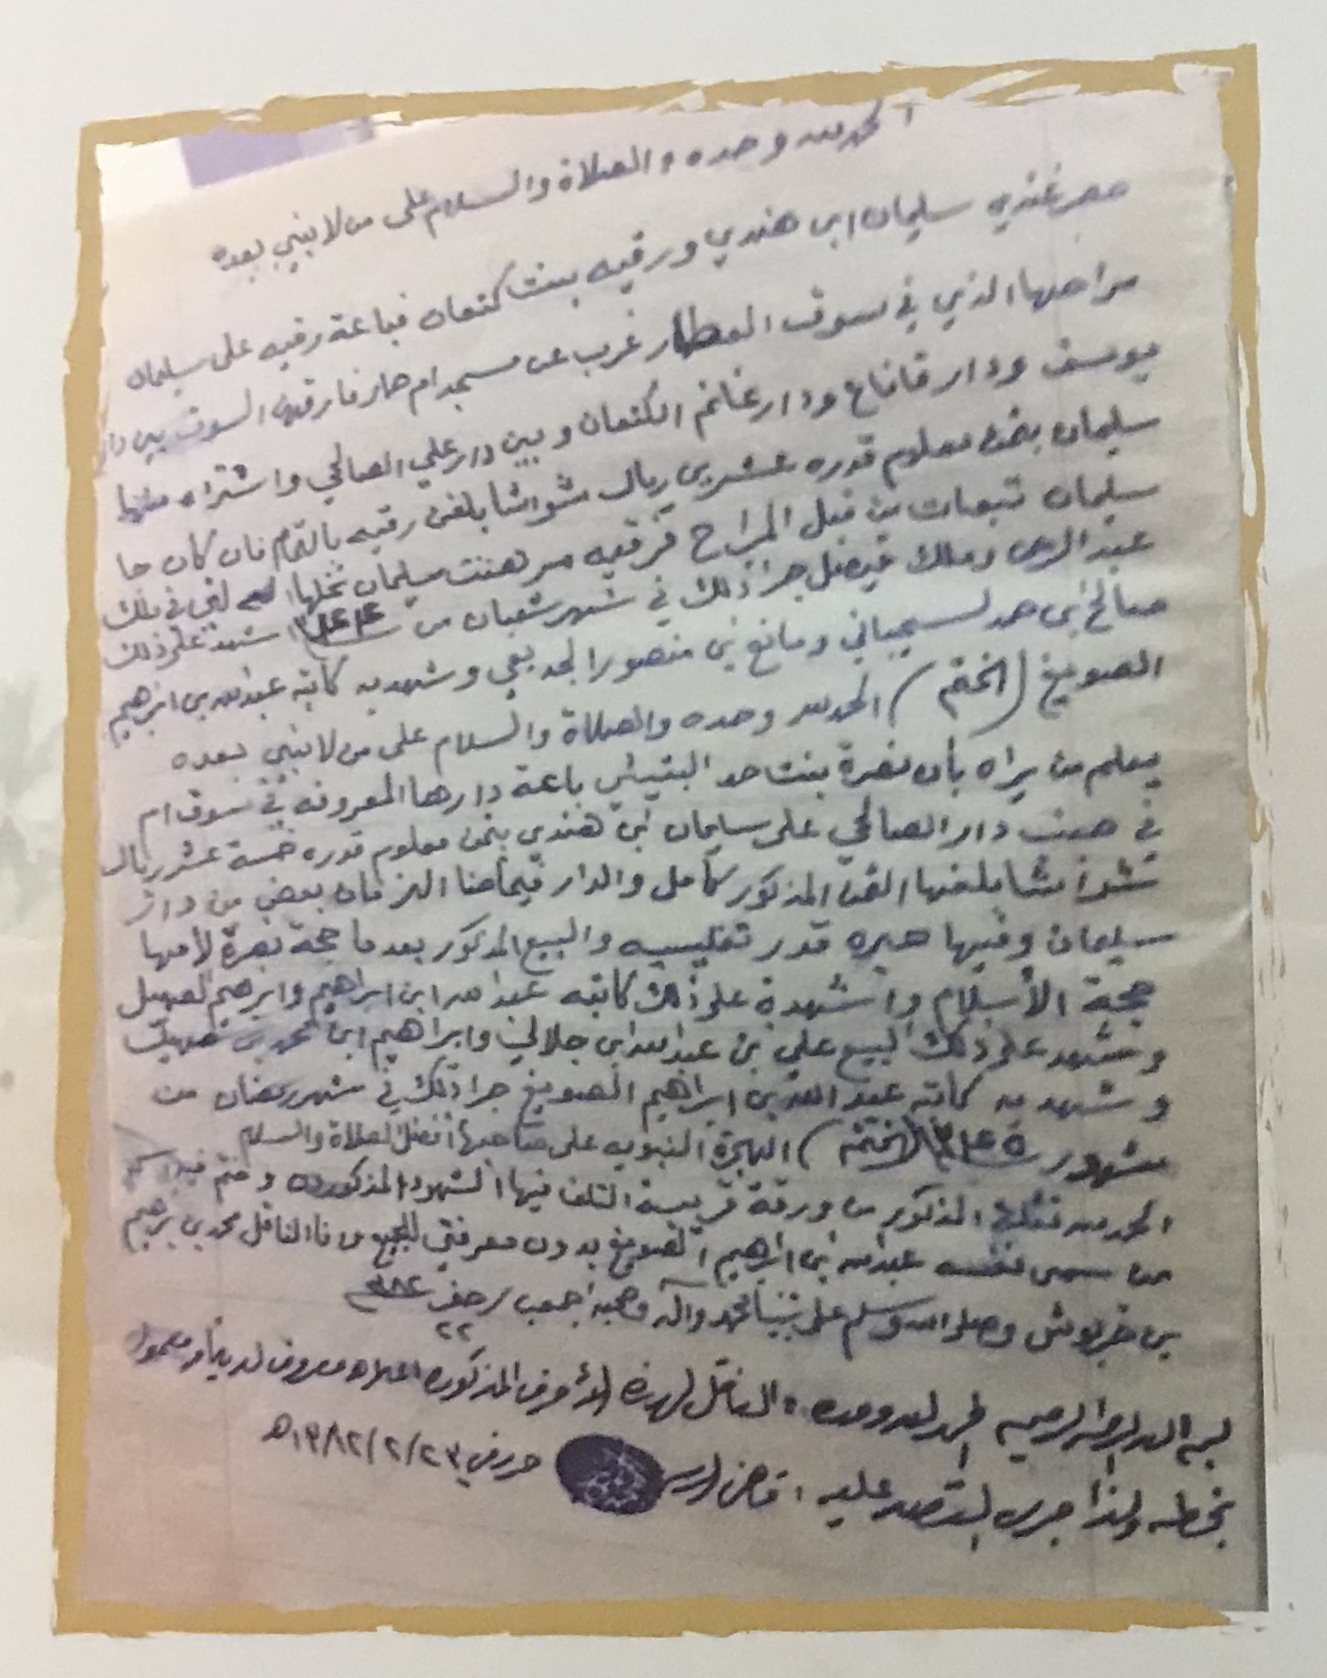 الحمد لله وحده والصلاة والسلام على من لا نبي بعده
حضر عندي سليمان ابن هندي ورقيه بنت كنعان فباعة رقيه على سليمان
مراحها الذي في سوق العطار غرب عن مسجد ام حمار فارقهن السوق بين دار
يوسف ودار قاناع ودار غانم الكنعان وبين دار علي الصالحي واشتراه منها
سليمان بثمن معلوم قدره عشرين ريال شوانشا بلغن رقيه بالتمام فان كان جا
سليمان تبعات من قبل المراح فرقيه مرهنت سليمان نخلها لي في ملك
عبد الرحمن وملك فيصل جرا ذلك في شهر شعبان من ١٢٤٤ شهد على ذلك
صالح ابن حمد لسحيباني ومانع بن منصور الجديعي وشهد به كاتبه عبد الله بن ابراهيم
الصويغ (الختم) الحمد لله وحده والصلاة والسلام على من لا نبي بعده
يعلم من يراه بأن نصرة بنت حمد البتيتي باعة دارها المعروفه في سوق ام
في صنف دار الصالحي على سليمان بن هندي بثمن معلوم قدره خمسة عشر ريال
شوانشا بلغنها الثمن المذكور كامل والدار فيما مضا الزمان بعض من دار
سليمان وفيها صبره قدر تفليسه والبيع المذكور بعد ما حجة نصرة لامها
حجة الأسلام واشهدة على ذلك كاتبه عبد الله ابن ابراهيم وابرهيم
وشهد على ذلك البيع علي بن عبد الله ابن جلالي وابراهيم ابن محمد بن
وشهد به كاتبه عبد الله بن ابراهيم الصويغ جرا ذلك في شهر رمضان من
شهور (الختم) الهجرة النبويه على صاحبها أفضل الصلاة والسلام
الحمد لله نقلة المذكور من ورقة قريبة التلف فيها الشهود المذكورين وختم فيه اسم
من سمى نفسه عبد الله بن ابراهيم الصويغ بدون معرفتي للجميع وانا الناقل محمد بن ابرهيم
بن خربوش وصلى الله وسلم على نبينا محمد وآله وصحبه اجمعين ٢٢ صفر ١٣٨٢
بسم الله الرحمن الرحيم الحمد لله وحده، الناقل لهذه الأحرف المذكوره اعلاه معروف لدينا ومعمول
بخطه ولذا جرى التصديق عليه، قاضي الرس حرر في ١٣٨٢/٢/٢٣هـ